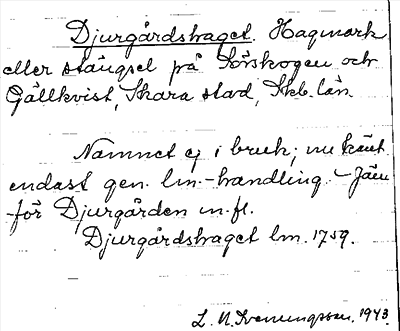 Djurgårdshaget. Hagmark
eller stängsel på Sörskogen och
Gällkvist, Skara stad, Skb. län.
Namnet ej i bruk; nu känt
endast gen. lm.-handling. - Jäm-
-för Djurgården m. fl.
Djurgårdshaget lm. 1759.
L. N. Svenungsson. 1943.